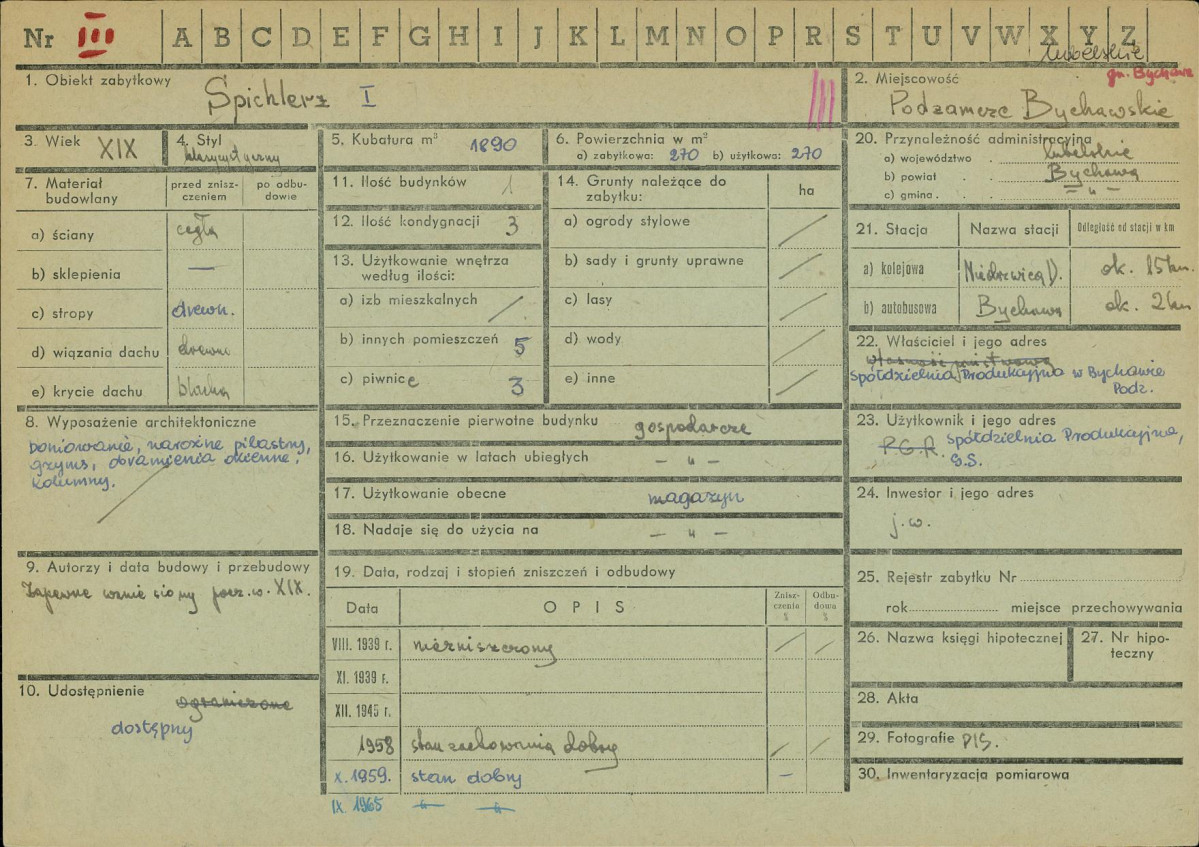 Nr III A B C D E F G H I J K L M N O P R S T U V W X Y Z
lubelskie
gm. Bychawa
1. Obiekt zabytkowy
Spichlerz I
2. Miejscowość
Podzamcze Bychawskie
3. Wiek XIX
4. Styl
klasycystyczny
5. Kubatura m³ 1890
6. Powierzchnia w m²
a) zabytkowa: 270 b) użytkowa: 270
7. Materiał budowlany
przed zniszczeniem
po odbudowie
a) ściany cegła
b) sklepienia —
c) stropy drewn.
d) wiązania dachu drewn.
e) krycie dachu blacha
8. Wyposażenie architektoniczne
boniowanie, narożne pilastry,
gzyms, obramienia okienne,
kolumny.
9. Autorzy i data budowy i przebudowy
Zapewne wzniesiony pocz. w. XIX.
10. Udostępnienie ograniczone
dostępny
11. Ilość budynków 1
12. Ilość kondygnacji 3
13. Użytkowanie wnętrza
według ilości:
a) izb mieszkalnych /
b) innych pomieszczeń 5
c) piwnic 3
14. Grunty należące do
zabytku:
ha
a) ogrody stylowe /
b) sady i grunty uprawne /
c) lasy /
d) wody /
e) inne /
15. Przeznaczenie pierwotne budynku gospodarcze
16. Użytkowanie w latach ubiegłych — „ —
17. Użytkowanie obecne magazyn
18. Nadaje się do użycia na — „ —
19. Data, rodzaj i stopień zniszczeń i odbudowy
Data OPIS Zniszczenia % Odbudowa %
VIII. 1939 r. niezniszczony / /
XI. 1939 r.
XII. 1945 r.
1958 stan zachowania dobry / /
X. 1959. stan dobry —
IX. 1965 —„— —„—
20. Przynależność administracyjna
a) województwo . lubelskie
b) powiat . . Bychawa
c) gmina . . . — „ —
21. Stacja Nazwa stacji Odległość od stacji w km
a) kolejowa Niedrzwica D. ok. 15 km.
b) autobusowa Bychawa ok. 2 km
22. Właściciel i jego adres
własność państwowa
Spółdzielnia Produkcyjna w Bychawie
Podz.
23. Użytkownik i jego adres
P.G.R. Spółdzielnia Produkcyjna,
G.S.
24. Inwestor i jego adres
j.w.
25. Rejestr zabytku Nr
rok miejsce przechowywania
26. Nazwa księgi hipotecznej
27. Nr hipoteczny
28. Akta
29. Fotografie PIS.
30. Inwentaryzacja pomiarowa